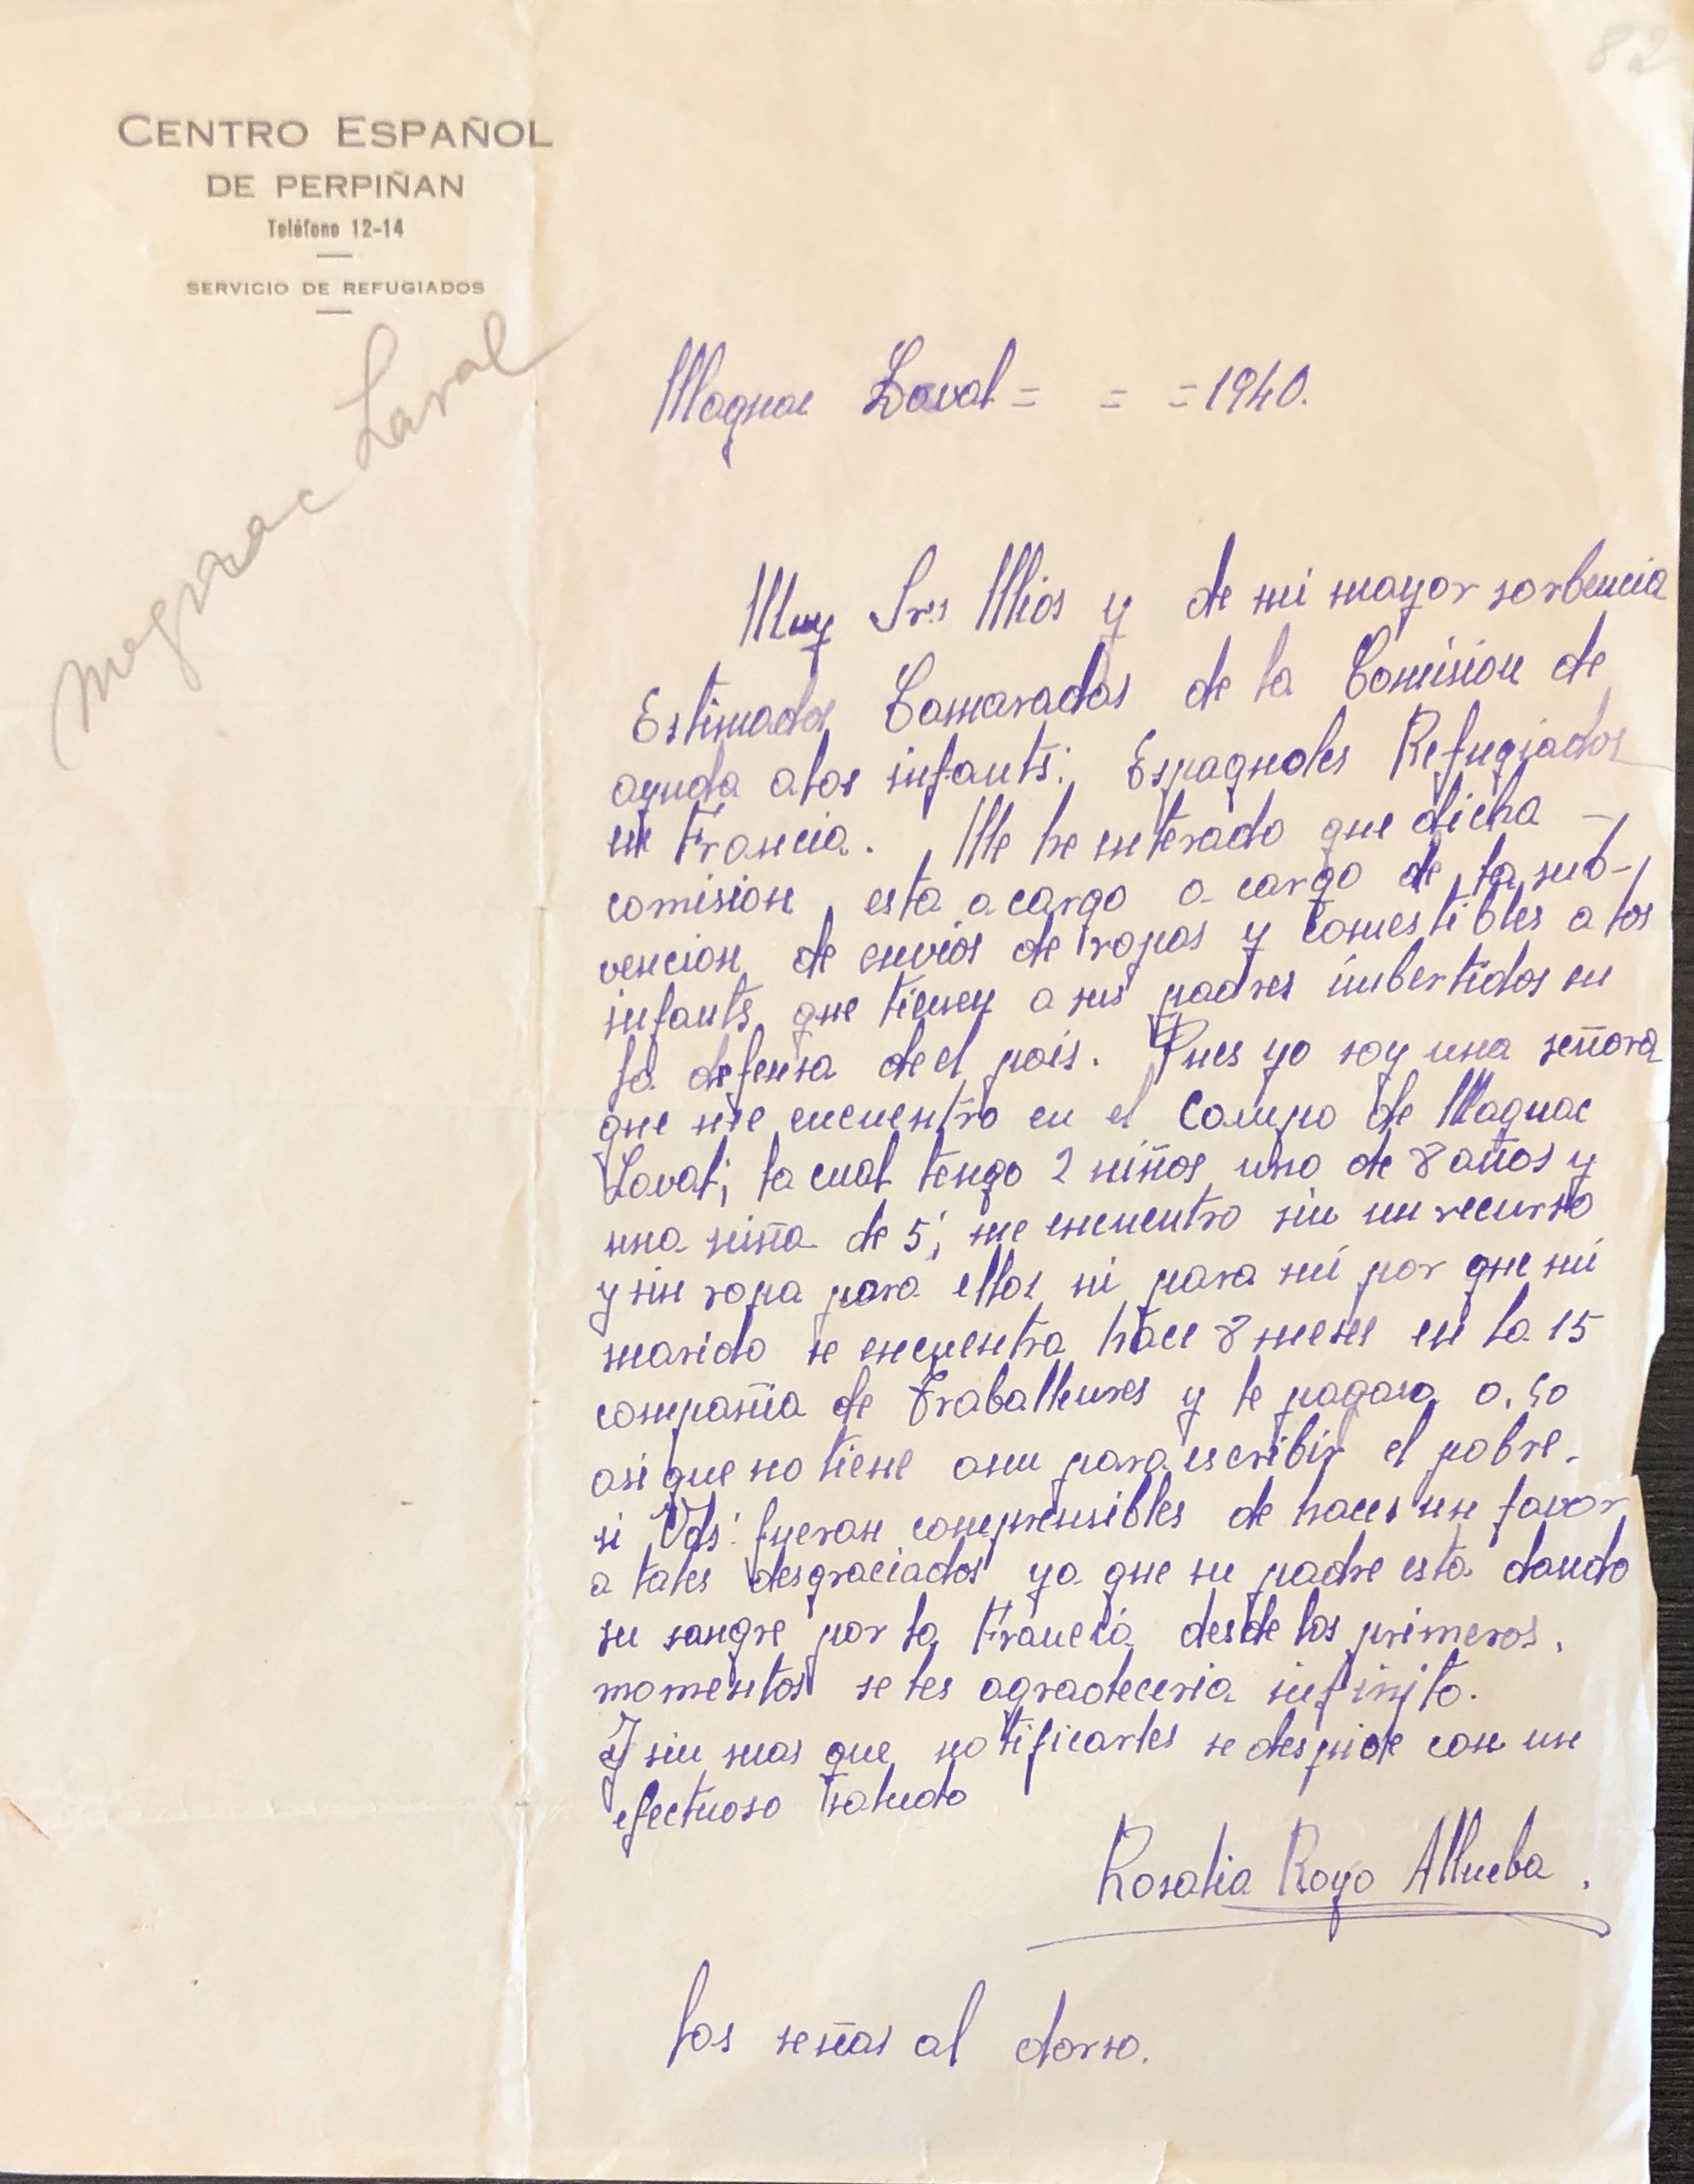 82
CENTRO ESPAÑOL
DE PERPIÑAN
Teléfono 12-14
SERVICIO DE REFUGIADOS
Magnac Laval
Magnac Laval = = = 1940.
Muy Srs Mios y de mi mayor sorbencia
Estimados Camaradas de la Comision de
ayuda a los infants: Espagnoles Refugiados
en Francia. Me he enterado que dicha -
comision esta a cargo a cargo de la sub-
vencion de envios de ropas y comestibles a los
infants que tienen a sus padres imbertidos en
la defensa de el pais. Pues yo soy una señora
que me encuentro en el Campo de Magnac
Laval; la cual tengo 2 niños uno de 8 años y
una niña de 5; me encuentro sin un recurso
y sin ropa para ellos ni para mi por que mi
marido se encuentra hace 8 meses en la 15
compañia de Traballeures y le pagan 0,50
asi que no tiene aun para escribir el pobre.
si Vds: fueran comprensibles de hacer un favor
a tales desgraciados ya que su padre esta dando
su sangre por la Francia desde los primeros,
momentos se les agradeceria infinito.
Y sin mas que notificarles se despide con un
efectuoso saludo
Rosalia Royo Allueba.
las señas al dorso.